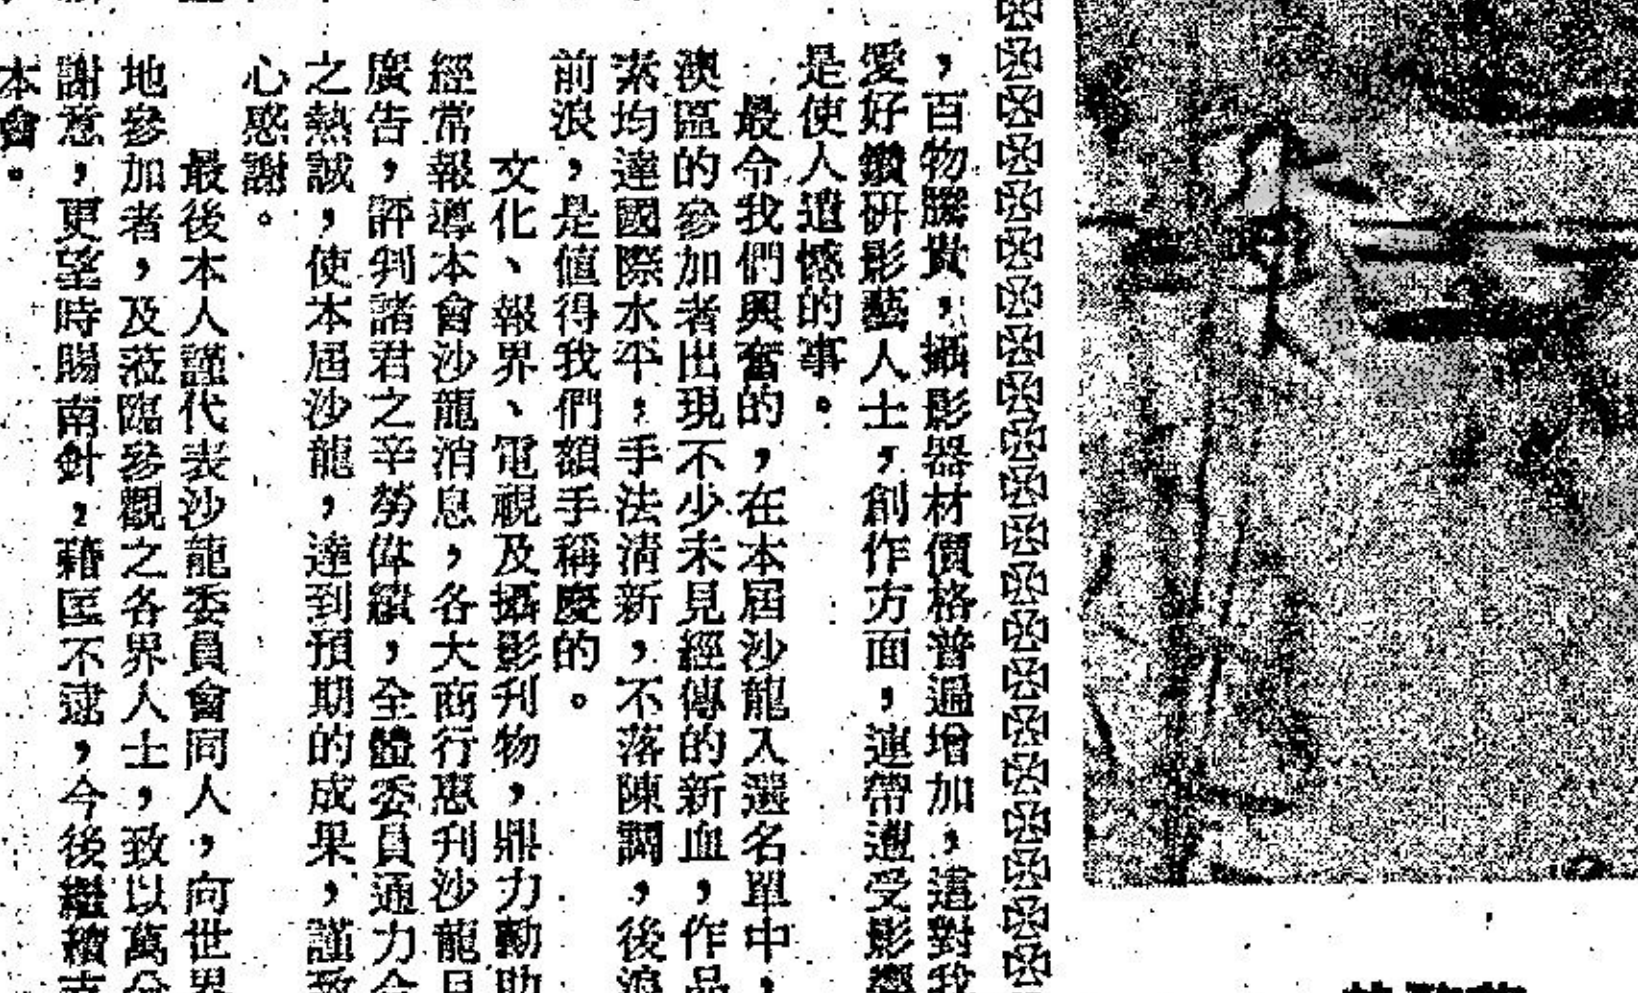 ，百物騰貴，攝影器材價格普遍增加，這對我
愛好鑽研影藝人士，創作方面，連帶遭受影響
是使人遺憾的事。
最令我們興奮的，在本屆沙龍入選名單中，
澳區的參加者出現不少未見經傳的新血，作品
素均達國際水平；手法清新，不落陳調，後浪
前浪，是值得我們額手稱慶的。
文化、報界、電視及攝影刊物，鼎力勷助
經常報導本會沙龍消息，各大商行惠刊沙龍目
廣告，評判諸君之辛勞偉績，全體委員通力合
之熱誠，使本屆沙龍，達到預期的成果，謹致
心感謝。
最後本人謹代表沙龍委員會同人，向世界
地參加者，及蒞臨參觀之各界人士，致以萬分
謝意，更望時賜南針，藉匡不逮，今後繼續支
本會。